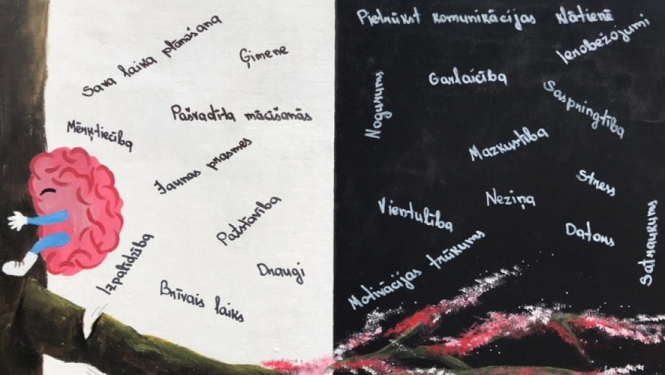 Sava laika plānošana
Ģimene
Pašvadīta mācīšanās
Mērķtiecība
Jaunas prasmes
Patstāvība
Izpalīdzība
Draugi
Brīvais laiks
Pietrūkst komunikācijas
Klātienē
Ierobežojumi
Garlaicība
Nogurums
Saspringtība
Mazkustība
Stress
Neziņa
Vientulība
Dators
Satraukums
Motivācijas trūkums